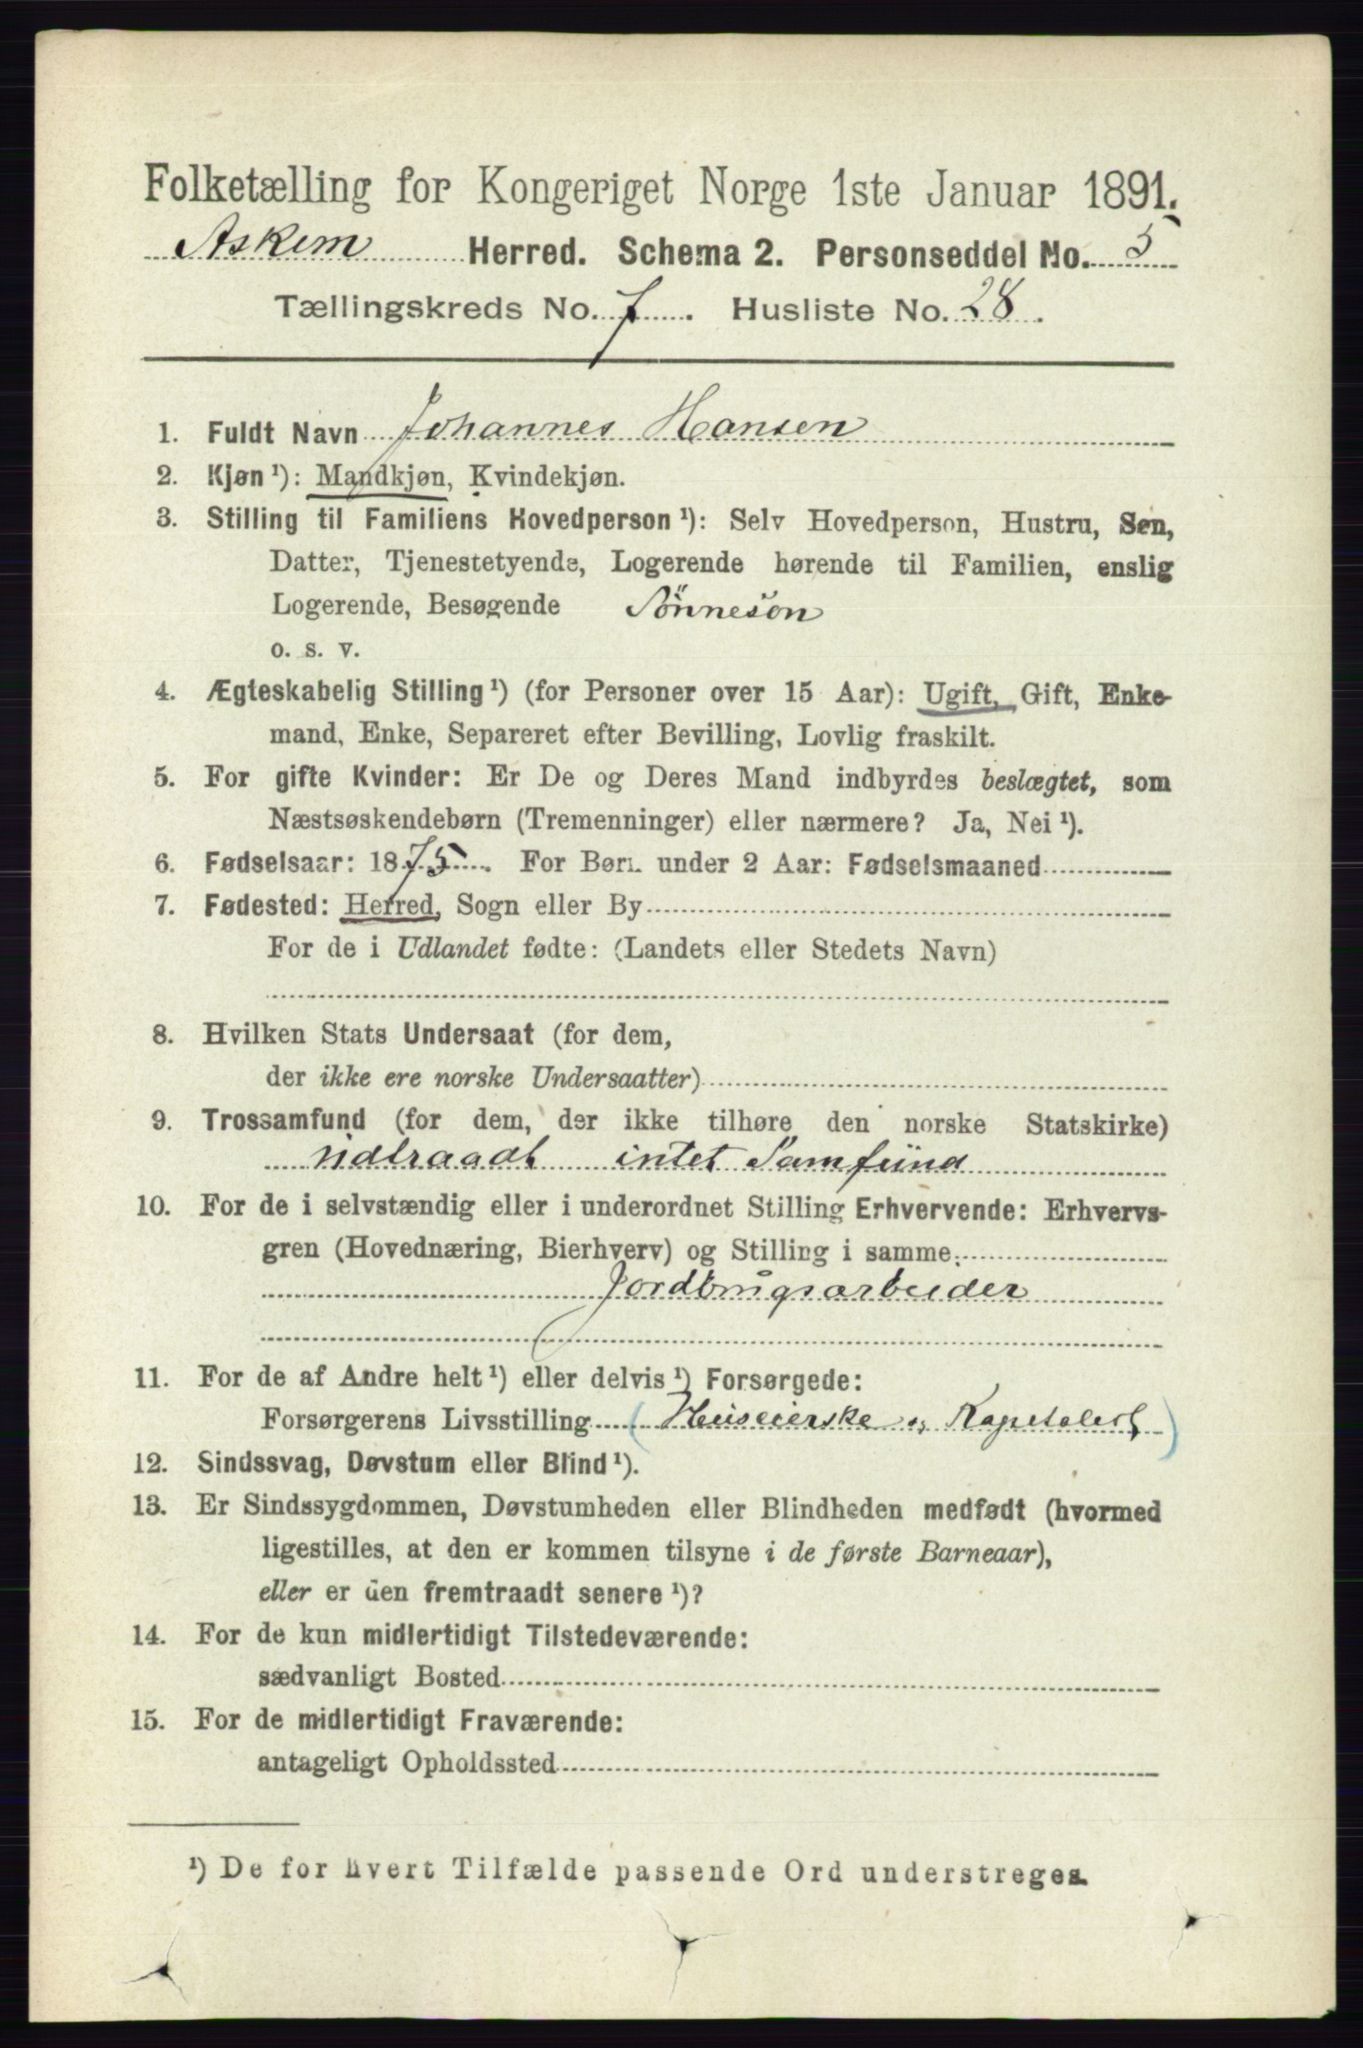 Folketælling for Kongeriget Norge 1ste Januar 1891.
Askim Herred. Schema 2. Personseddel No. 5
Tællingskreds No. 7. Husliste No. 28.
1. Fuldt Navn Johannes Hansen
2. Kjøn ¹): Mandkjøn, Kvindekjøn.
3. Stilling til Familiens Hovedperson ¹): Selv Hovedperson, Hustru, Søn,
Datter, Tjenestetyende, Logerende hørende til Familien, enslig
Logerende, Besøgende Sønnesøn
o. s. v.
4. Ægteskabelig Stilling ¹) (for Personer over 15 Aar): Ugift, Gift, Enke-
mand, Enke, Separeret efter Bevilling, Lovlig fraskilt.
5. For gifte Kvinder: Er De og Deres Mand indbyrdes beslægtet, som
Næstsøskendebørn (Tremenninger) eller nærmere? Ja, Nei ¹).
6. Fødselsaar: 1875. For Børn under 2 Aar: Fødselsmaaned
7. Fødested: Herred, Sogn eller By
For de i Udlandet fødte: (Landets eller Stedets Navn)
8. Hvilken Stats Undersaat (for dem,
der ikke ere norske Undersaatter)
9. Trossamfund (for dem, der ikke tilhøre den norske Statskirke)
udtraadt intet Samfund
10. For de i selvstændig eller i underordnet Stilling Erhvervende: Erhvervs-
gren (Hovednæring, Bierhverv) og Stilling i samme.
Jordbrugsarbeider
11. For de af Andre helt ¹) eller delvis ¹) Forsørgede:
Forsørgerens Livsstilling (Huseierske og Kapitalist)
12. Sindssvag, Døvstum eller Blind ¹).
13. Er Sindssygdommen, Døvstumheden eller Blindheden medfødt (hvormed
ligestilles, at den er kommen tilsyne i de første Barneaar),
eller er den fremtraadt senere ¹)?
14. For de kun midlertidigt Tilstedeværende:
sædvanligt Bosted
15. For de midlertidigt Fraværende:
antageligt Opholdssted
¹) De for hvert Tilfælde passende Ord understreges.